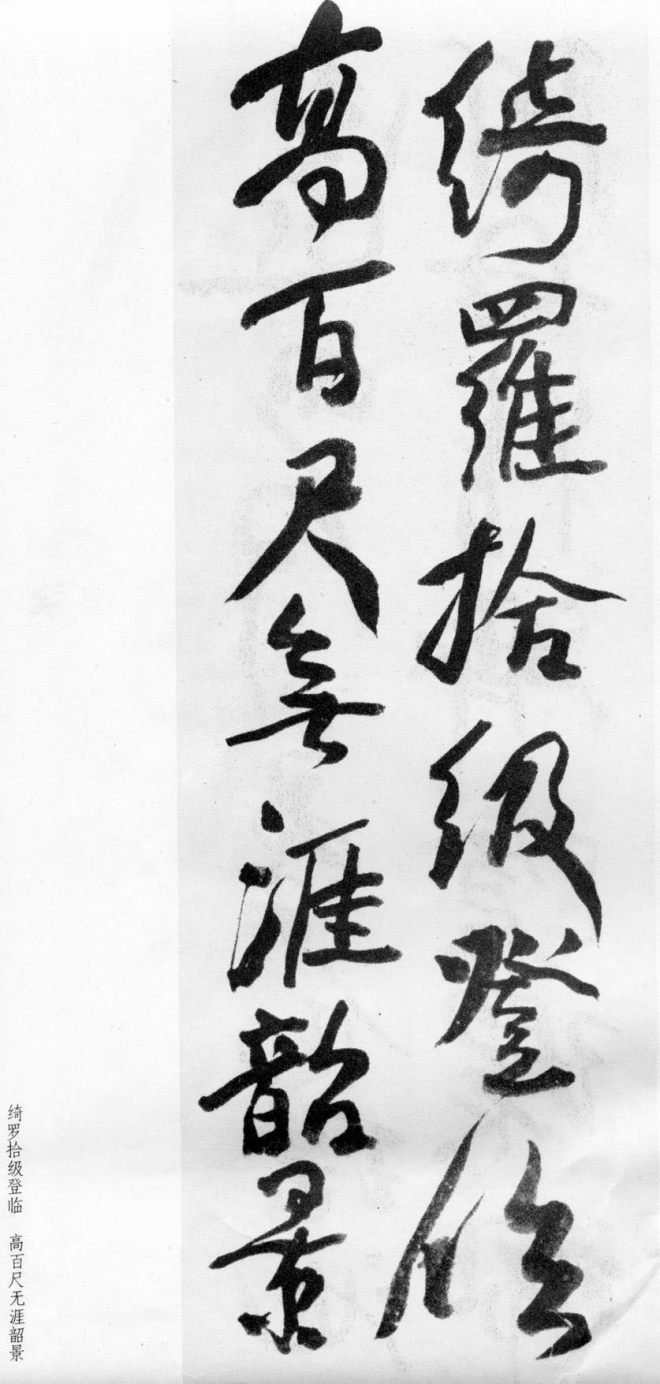 綺羅拾级登临
高百尺無涯韶景
绮罗拾级登临　高百尺无涯韶景